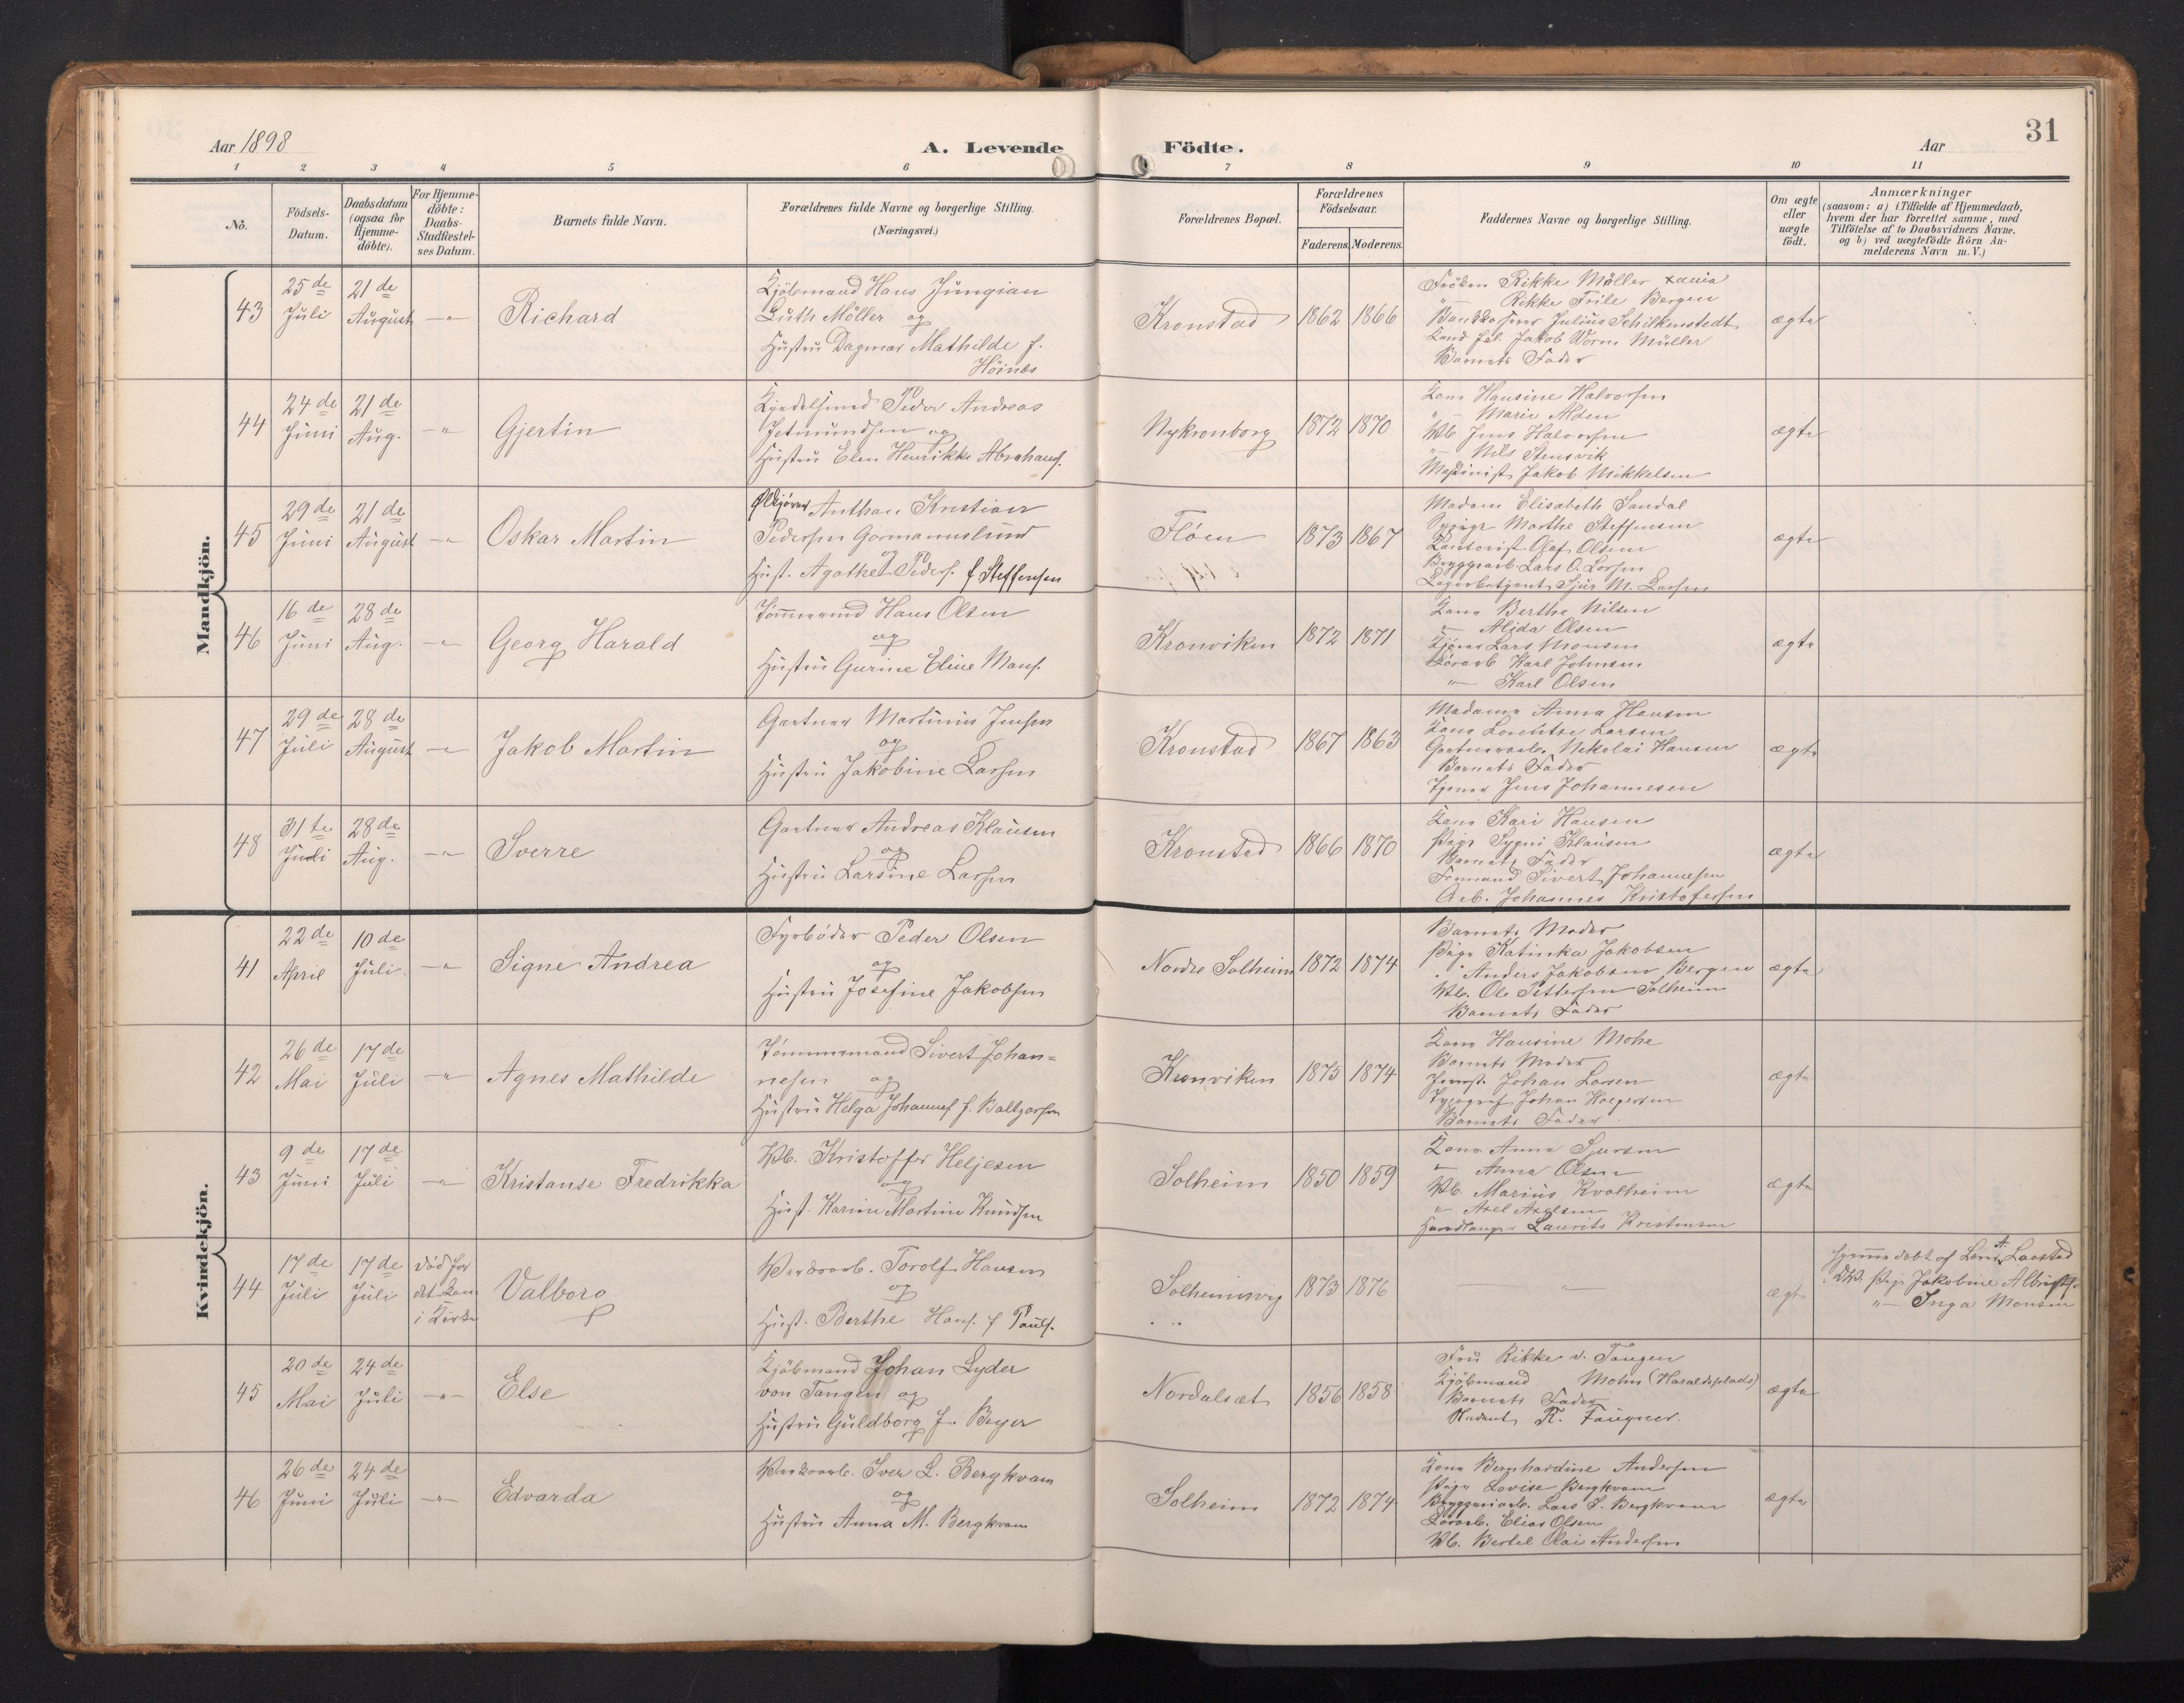 31
Aar 1898
A. Levende Födte.
Aar
1 2 3 4 5 6 7 8 9 10 11
No.
Födsels-
Datum.
Daabsdatum
(ogsaa for
Hjemme-
döbte).
For Hjemme-
döbte:
Daabs-
Stadfæstel-
ses Datum.
Barnets fulde Navn.
Forældrenes fulde Navne og borgerlige Stilling.
(Næringsvei.)
Forældrenes Bopæl.
Forældrenes
Födselsaar.
Faderens. Moderens.
Faddernes Navne og borgerlige Stilling.
Om ægte
eller
uægte
födt.
Anmærkninger
(saasom: a) i Tilfælde af Hjemmedaab,
hvem der har forrettet samme, med
Tilföielse af to Daabsvidners Navne.
og b) ved uægtefödte Börn An-
melderens Navn m. V.)
Mandkjön.
43
25de
Juli
21de
August
Richard
Kjöbmand Hans Jüngian
Luth Möller og
Hustru Dagmar Mathilde f.
Höinæs
Kronstad
1862 1866
Fröken Rikke Möller
Rikke Friele Bergen
Julius Schilkenstedt
Jakob Worm Müller
Barnets Fader
ægte
44
24de
Juni
21de
Aug.
Gjertin
Kjedelsmed Peder Andreas
Jetmundsen og
Hustru Elen Henrikke Abrahams.
Nykronborg
1872 1870
Kone Hansine Halvorsen
" Marie Alden
Vb Jens Halvorsen
" Nils Stensvik
Maskinist Jakob Mikkelsen
ægte
45
29de
Juni
21de
August
Oskar Martin
Ølkjører Anthon Kristian
Pedersen Gormannslund
og
Hust. Agathe Peders. f Steffensen
Fløen
1873 1867
Madam Elisabeth Sandal
Sypige Marthe Steffensen
Kontorist Olaf Olsen
Bryggeriarb Lars O. Larsen
Lagerbetjent Sjur M. Larsen
ægte
46
16de
Juni
28de
Aug.
Georg Harald
Tömmermd Hans Olsen
og
Hustru Gurine Eline Mons.
Kronviken
1872 1871
Kone Berthe Nilsen
" Alida Olsen
Kjører Lars Monsen
Karl Johnsen
" Karl Olsen
ægte
47
29de
Juli
28de
August
Jakob Martin
Gartner Martinus Jensen
og
Hustru Jakobine Larsen
Kronstad
1867 1863
Madame Anna Hansen
Kone Lorentze Larsen
Gartnerarb. Nikolai Hansen
Barnets Fader
Tjener Jens Johannesen
ægte
48
31te
Juli
28de
Aug.
Sverre
Gartner Andreas Klausen
og
Hustru Larsine Larsen
Kronstad
1866 1870
Kone Kari Hansen
Pige Sygni Klausen
Barnets Fader
Formand Sivert Johannesen
Arb. Johannes Kristofersen
ægte
Kvindekjön.
41
22de
April
10de
Juli
Signe Andrea
Fyrböder Peder Olsen
og
Hustru Josefine Jakobsen
Nordre Solheim
1872 1874
Barnets Moder
Pige Katinka Jakobsen
" Anders Jakobsen, Bergen
Vb. Ole Pettersen Solheim
Barnets Fader
ægte
42
26de
Mai
17de
Juli
Agnes Mathilde
Tömmermand Sivert Johan=
nesen og
Hustru Helga Johannes f. Baltzersen
Kronviken
1875 1874
Kone Hansine Mohe
Barnets Moder
Johan Larsen
Typograf Johan Holgersen
Barnets Fader
ægte
43
9de
Juni
17de
Juli
Kristanse Fredrikka
Vb. Kristoffer Heljesen
og
Hust. Karine Martine Knudsen
Solheim
1850 1859
Kone Anna Sjursen
" Anna Olsen
Vb. Marius Kvalheim
" Axel Axelsen
Handlanger Laurits Kristensen
ægte
44
17de
Juli
17de
Juli
død før
det kom
i Kirke
Valborg
Værksarb. Torolf Hansen
og
Hust. Berthe Hans. f Pauls.
Solheimsvig
1873 1876
ægte
hjemmedøbt af Lars A. Laastad
DV. Pige Jakobine Albrigts.
" Inga Monsen
45
20de
Mai
24de
Juli
Else
Kjöbmand Johan Lyder
von Tangen og
Hustru Guldborg f. Beyer
Nordalsæt
1856 1858
Fru Rikke v. Tangen
Kjöbmand Mohn (Haraldsplads)
Barnets Fader
Student R. Faugner.
ægte
46
26de
Juni
24de
Juli
Edvarda
Værksarb. Iver L. Bergkvam
og
Hustru Anna M. Bergkvam
Solheim
1872 1874
Kone Bernhardine Andersen
Pige Lovise Bergkvam
Bryggeriarb. Lars S. Bergkvam
Elias Olsen
Vb. Bertel Olai Andersen
ægte